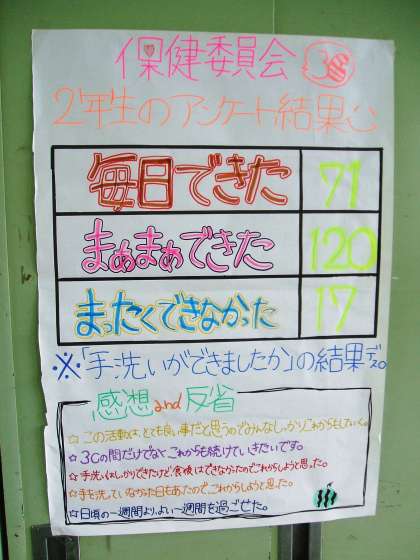 保健委員会
2年生のアンケート結果
毎日できた 71
まあまあできた 120
まったくできなかった 17
※「手洗いができましたか」の結果デス。
感想and反省
☆この活動は、とても良い事だと思うのでみんなしっかりこれからもしていく。
☆3Cの間だけでなくこれからも続けていきたいです。
☆手洗いはしっかりできたけど、食後はできなかったのでこれからしようと思った。
☆手を洗っていなかった日もあたのでこれからしようと思った。
☆日頃の一週間より、よい一週間を過ごせた。